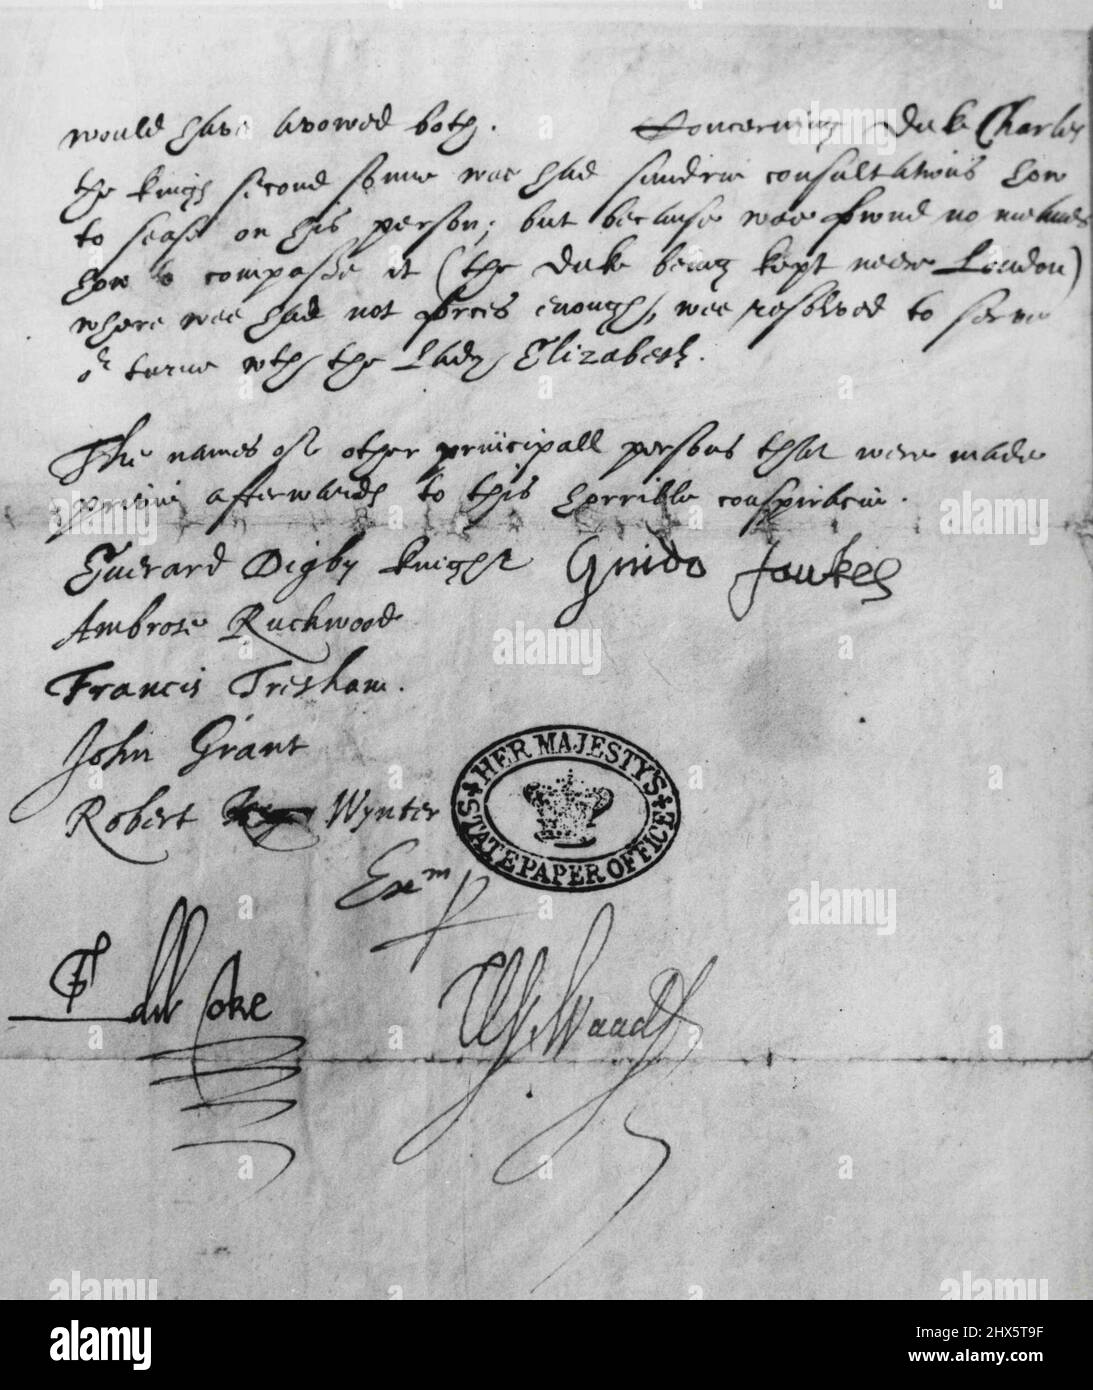 would have avowed both. Concerning Duke Charles
the kings second sonne wee had sundrie consultations how
to sease on his person; but because wee fownd no meanes
how to compasse it (the Duke being kept neere London)
where wee had not forces enough, wee resolved to serve
or turne wth the Lady Elizabeth.
The names of other principall persons that were made
privie afterwards to this horrible conspiracie.
Everard Digby knight Guido Faukes
Ambrose Ruckwood
Francis Tresham.
John Grant
Robert Wynter
HER MAJESTY'S
STATE PAPER OFFICE
Exm p
Edw Coke
W. Waad
alamy
a
alamy
Image ID: 2HX5T9F
www.alamy.com